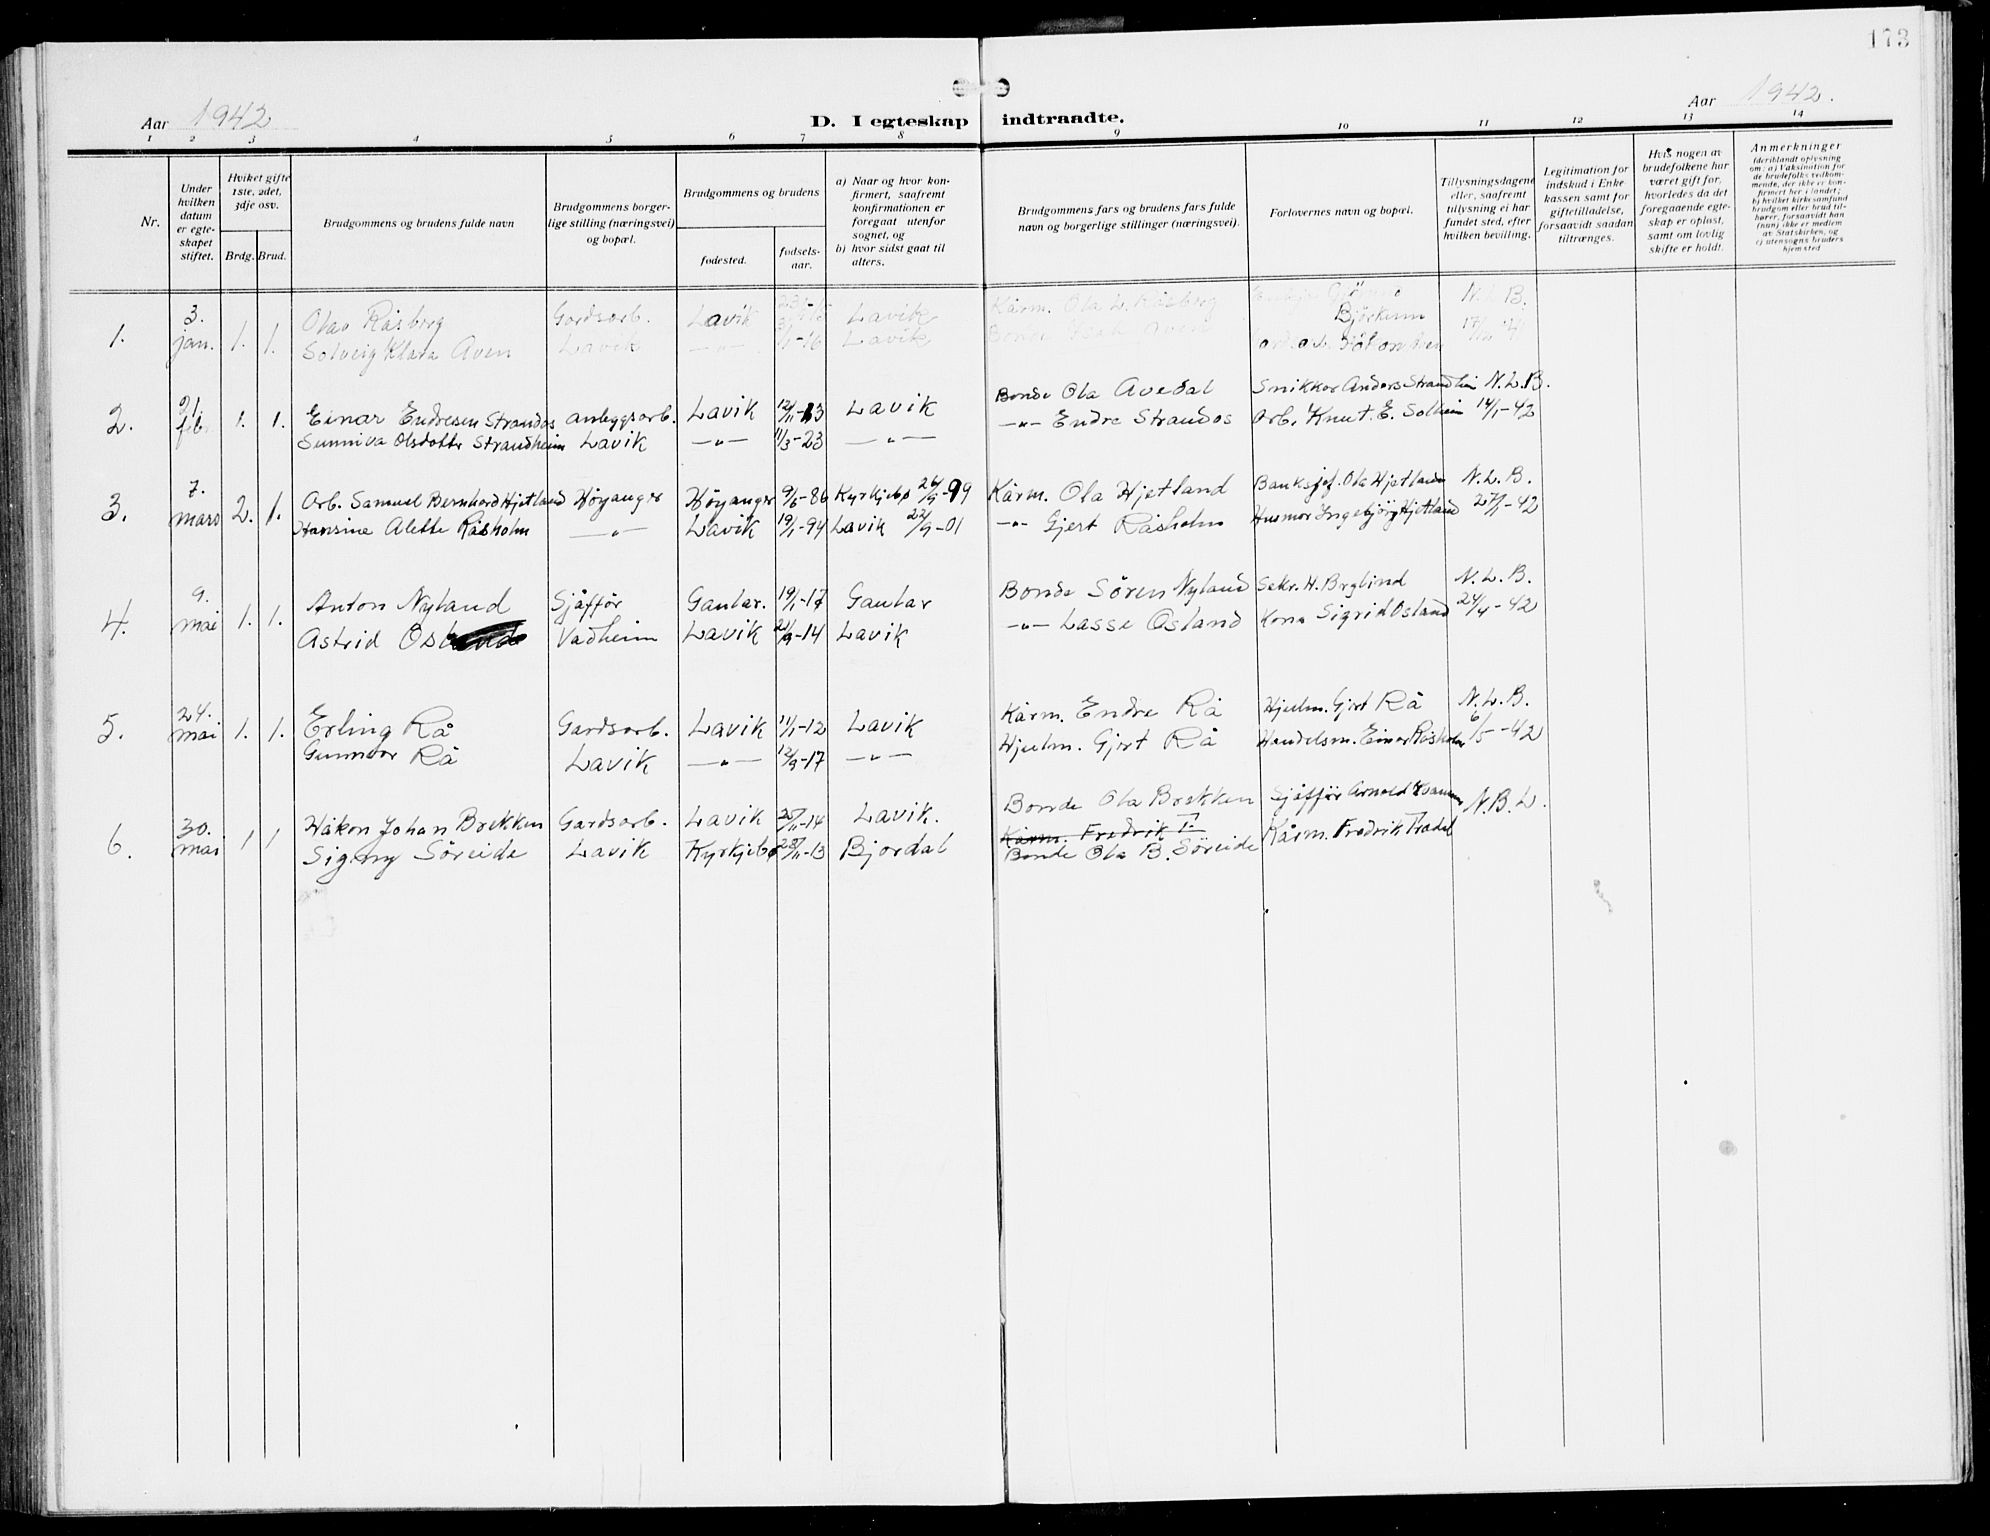 173
Aar 1942
D. I egteskap indtraadte.
Aar 1942.
1 2 3 4 5 6 7 8 9 10 11 12 13 14
Nr.
Under hvilken datum er egteskapet stiftet.
Hvilket gifte 1ste, 2det, 3dje osv.
Brdg. Brud.
Brudgommens og brudens fulde navn
Brudgommens borgerlige stilling (næringsvei) og bopæl.
Brudgommens og brudens
fødested.
fødselsaar.
a) Naar og hvor konfirmert, saafremt konfirmationen er foregaat utenfor sognet, og
b) hvor sidst gaat til alters.
Brudgommens fars og brudens fars fulde navn og borgerlige stillinger (næringsvei).
Forlovernes navn og bopæl.
Tillysningsdagene eller, saafremt tillysning ei har fundet sted, efter hvilken bevilling.
Legitimation for indskud i Enkekassen samt for giftetilladelse, forsaavidt saadan tiltrænges.
Hvis nogen av brudefolkene har været gift før, hvorledes da det foregaaende egteskap er opløst, samt om lovlig skifte er holdt.
Anmerkninger
(deriblandt oplysning om: a) Vaksination for de brudefolks vedkommende, der ikke er konfirmert her i landet; b) hvilket kirkesamfund brudgom eller brud tilhører, forsaavidt han (hun) ikke er medlem av Statskirken, og c) utensogns bruders hjemsted
1. 3. jan. 1. 1. Olav Råsberg Gardsarb. Lavik Lavik Kårm. Ola L. Råsberg N.L.B.
Solveig Klara Aven Lavik —"— Lavik Bonde Aven Bjørkum
2. 21. feb. 1. 1. Einar Endresen Strandos anleggsarb. Lavik 12/11-13 Lavik Bonde Ola Avedal Snikkar Anders Strandheim N.L.B.
Sunniva Olsdotter Strandheim Lavik —"— 11/3-23 —"— —"— Endre Strandos Arb. Knut. E. Solheim 14/1-42
3. 7. mars 2. 1. Arb. Samuel Bernhard Hjetland Høyanger Høyanger 9/6-86 Kyrkjebø 26/9-99 Kårm. Ola Hjetland Banksjef. Ola Hjetland N.L.B.
Hansine Alette Råsholm —"— Lavik 19/1-94 Lavik 22/9-01 —"— Gjert Råsholm Husmor Ingebjørg Hjetland 27/1-42
4. 9. mai 1. 1. Anton Nyland Sjåfför Gaular. 19/1-17 Gaular Bonde Sören Nyland Sekr. H. Berglind N.L.B.
Astrid Østland Vadheim Lavik 21/9-14 Lavik —"— Lasse Østland Kona Sigrid Østland 24/4-42
5. 24. mai 1. 1. Erling Rå Gardsarb. Lavik 11/1-12 Lavik Kårm. Endre Rå Hjulm. Gjert Rå N.L.B.
Gunnvor Rå Lavik —"— 12/9-17 —"— Hjulm. Gjert Rå Handelsm. Einar Råsholm 6/5-42
6. 30. mai 1 1 Håkon Johan Brekken Gardsarb. Lavik 25/11-14 Lavik. Bonde Ola Brekken Sjåfför Arnold Kvamme N.B.L.
Signy Söreide Lavik Kyrkjebø 28/11-13 Bjordal Kårm. Fredrik T. Kårm. Fredrik Tradal
Bonde Ola B. Söreide